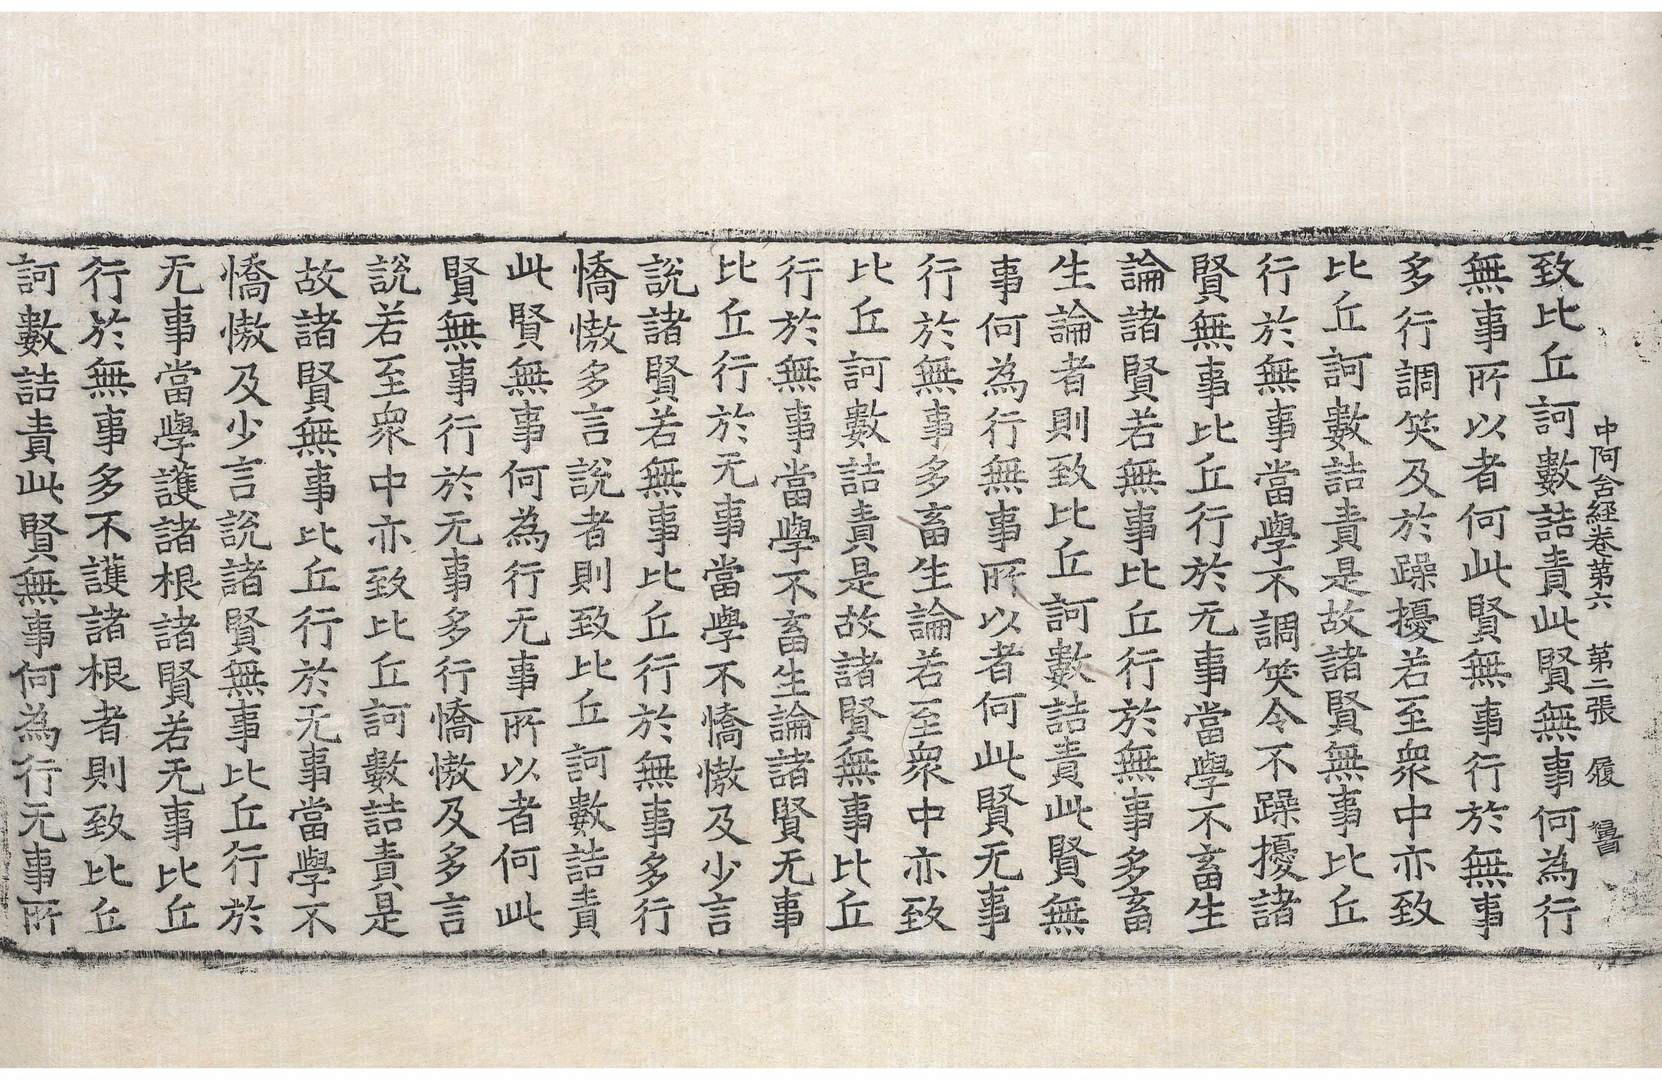 中阿含經卷第六　第二張　履
致比丘訶數詰責此賢無事何為行
無事所以者何此賢無事行於無事
多行調笑及於躁擾若至衆中亦致
比丘訶數詰責是故諸賢無事比丘
行於無事當學不調笑令不躁擾諸
賢無事比丘行於无事當學不畜生
論諸賢若無事比丘行於無事多畜
生論者則致比丘訶數詰責此賢無
事何為行無事所以者何此賢无事
行於無事多畜生論若至衆中亦致
比丘訶數詰責是故諸賢無事比丘
行於無事當學不畜生論諸賢无事
比丘行於无事當學不憍慠及少言
說諸賢若無事比丘行於無事多行
憍慠多言說者則致比丘訶數詰責
此賢無事何為行无事所以者何此
賢無事行於无事多行憍慠及多言
說若至衆中亦致比丘訶數詰責是
故諸賢無事比丘行於无事當學不
憍慠及少言說諸賢無事比丘行於
无事當學護諸根諸賢若无事比丘
行於無事多不護諸根者則致比丘
訶數詰責此賢無事何為行无事所